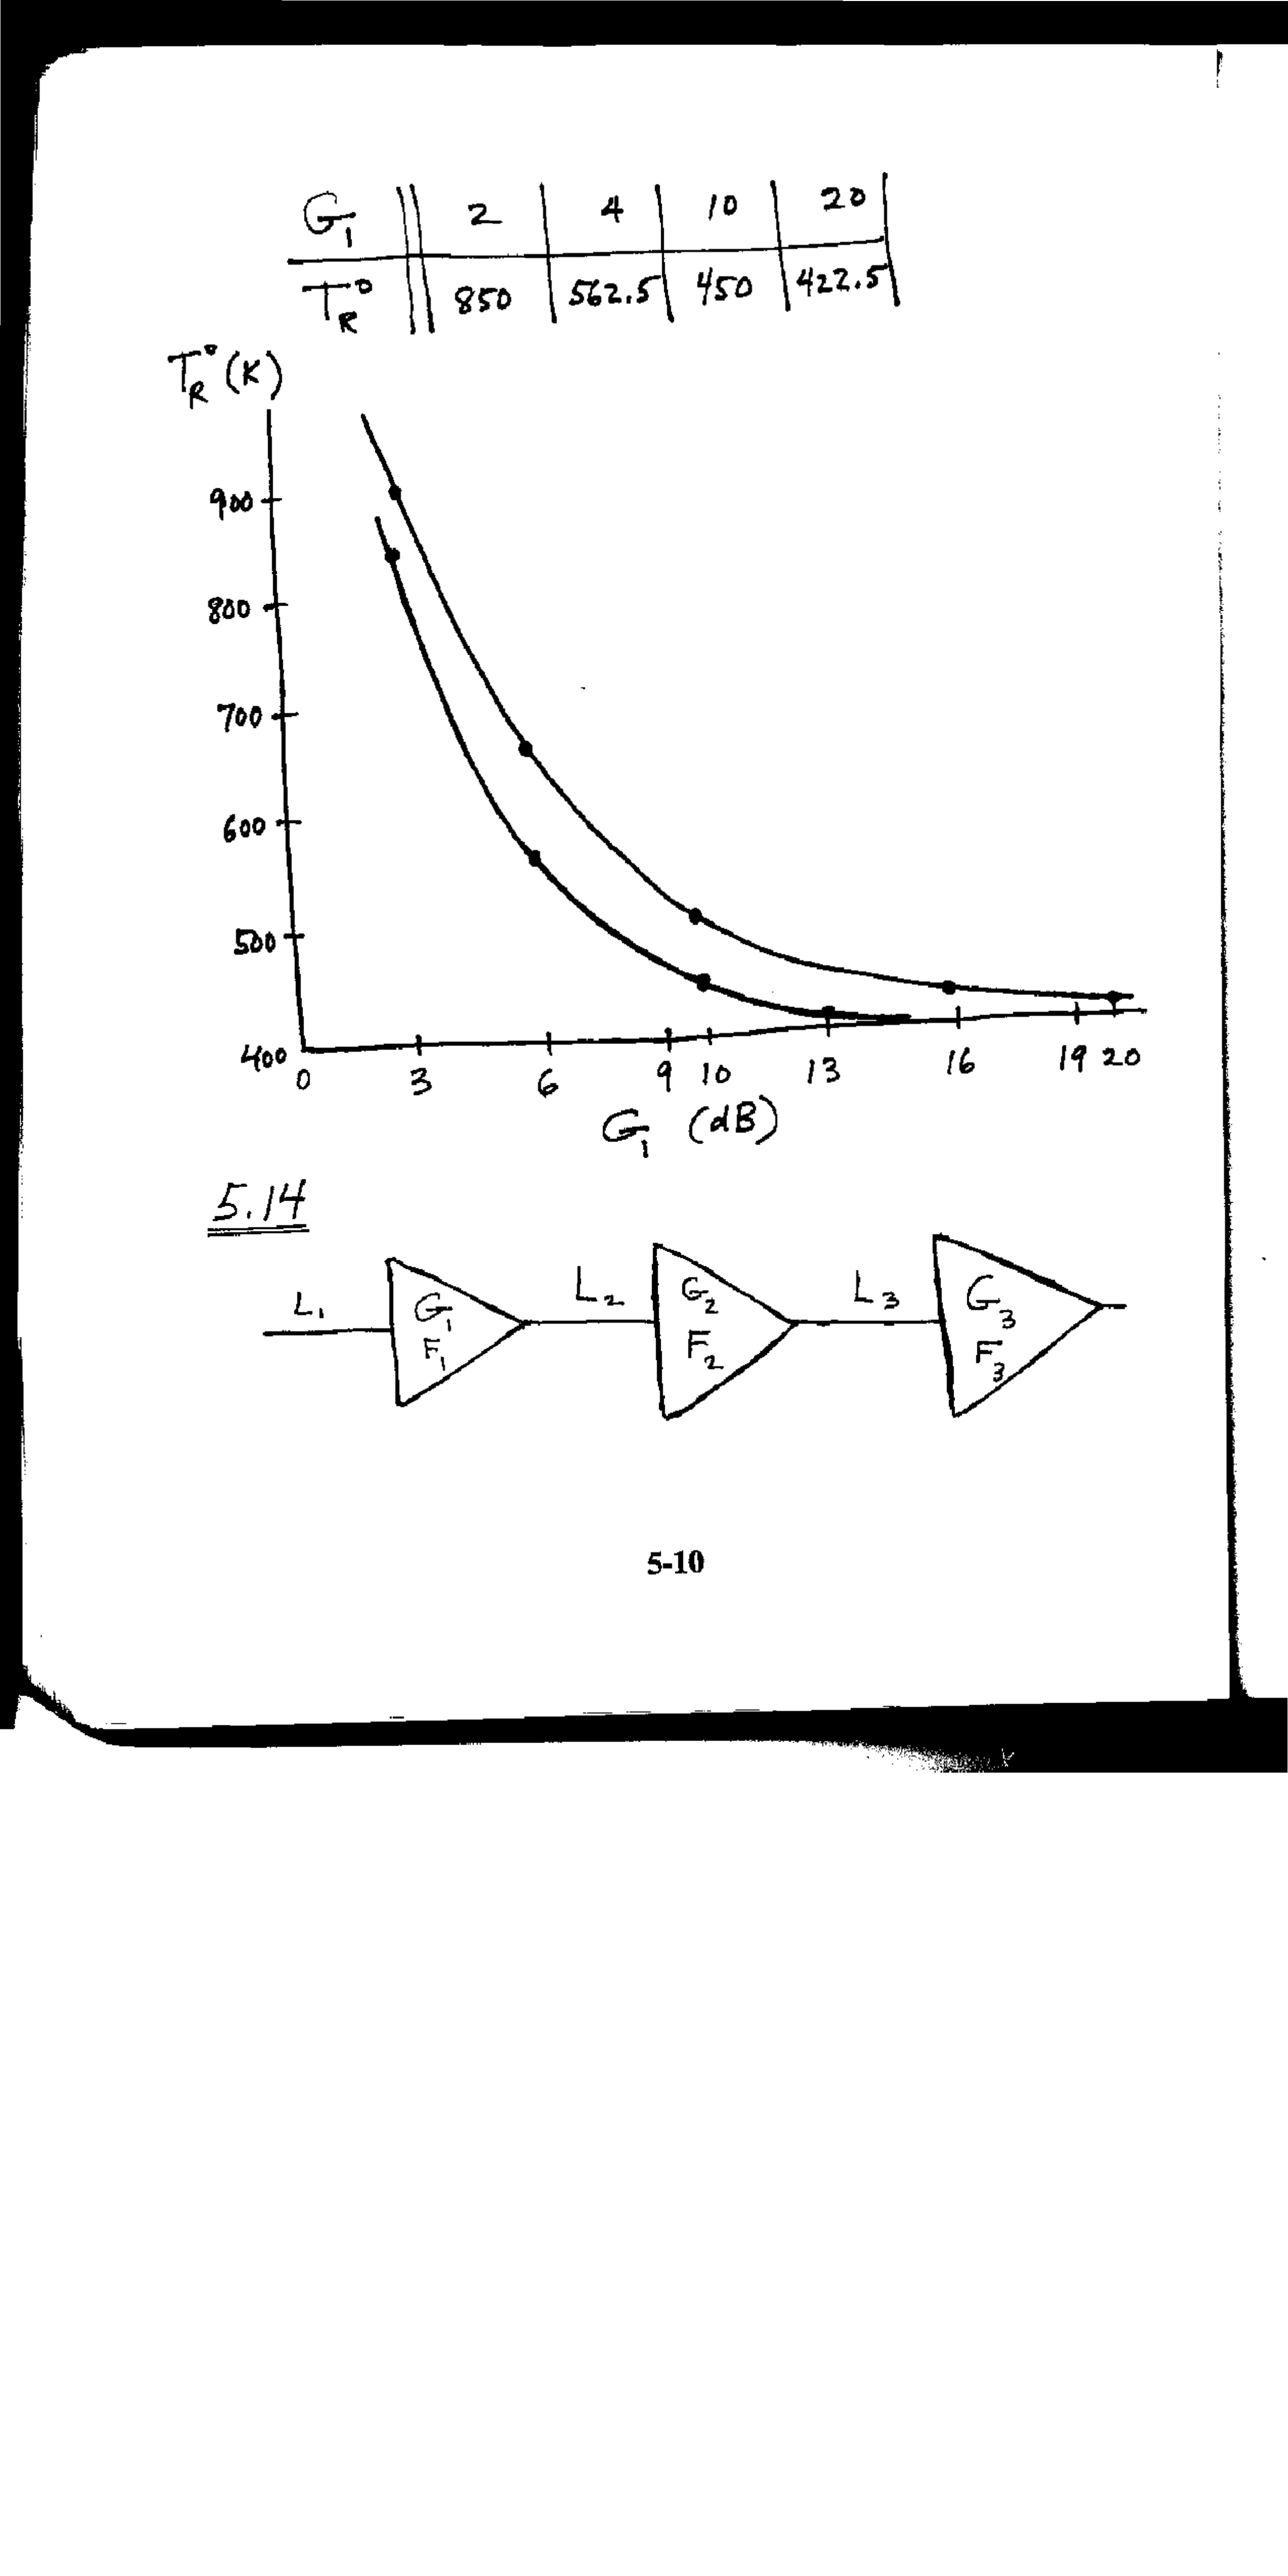 G₁ 2 4 10 20
T_R° 850 562.5 450 422.5
T_R° (K)
900
800
700
600
500
400
0 3 6 9 10 13 16 19 20
G₁ (dB)
5.14
L₁ G₁ F₁ L₂ G₂ F₂ L₃ G₃ F₃
5-10